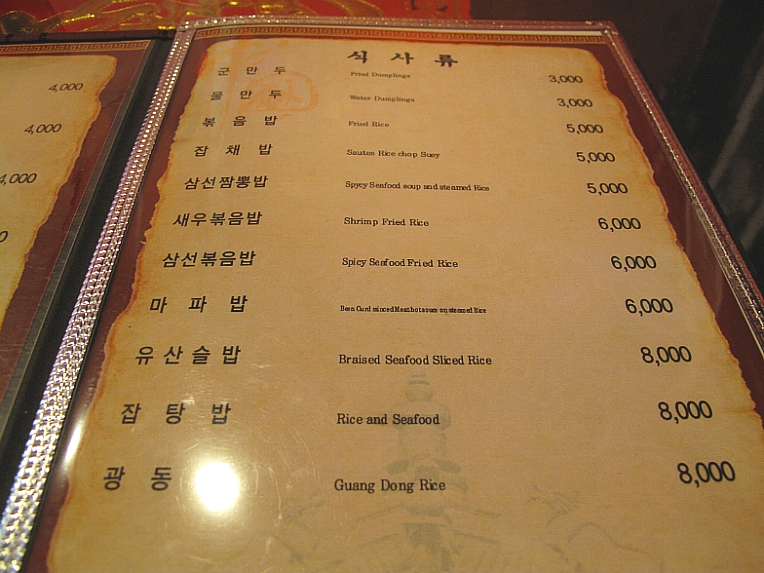 4,000
4,000
4,000
식 사 류
군 만 두 Fried Dumplings 3,000
물 만 두 Water Dumplings 3,000
볶 음 밥 Fried Rice 5,000
잡 채 밥 Sautes Rice chop Suey 5,000
삼선짬뽕밥 Spycy Seafood soup and steamed Rice 5,000
새우볶음밥 Shrimp Fried Rice 6,000
삼선볶음밥 Spicy Seafood Fried Rice 6,000
마 파 밥 Bean Curd minced Meat hot sauce on steamed Rice 6,000
유 산 슬 밥 Braised Seafood Sliced Rice 8,000
잡 탕 밥 Rice and Seafood 8,000
광 동 Guang Dong Rice 8,000